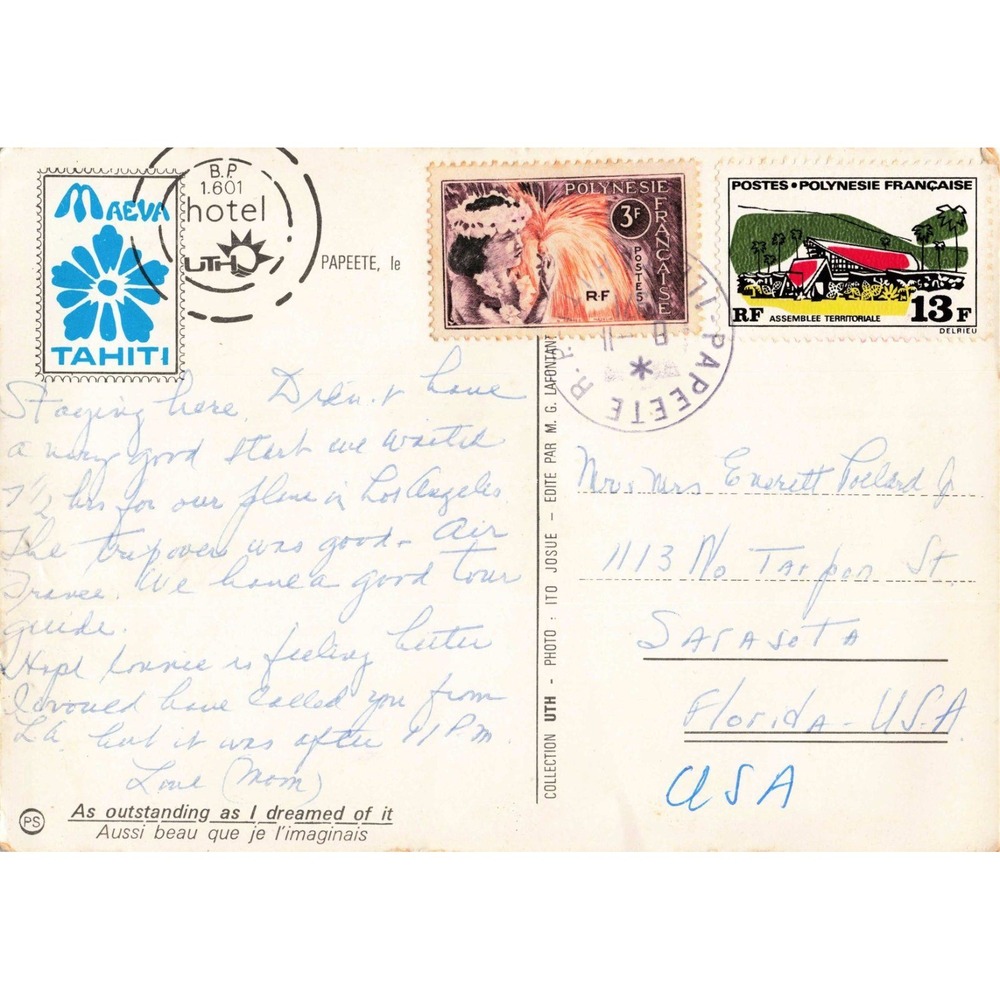 MAEVA
TAHITI
B.P.
1.601
hotel
UTH
PAPEETE, le
POLYNESIE FRANÇAISE
3F
POSTES
RF
POSTES • POLYNESIE FRANÇAISE
RF ASSEMBLEE TERRITORIALE 13F
DELRIEU
PAPEETE R.
Staying here. Didn't have
a very good start we waited
7 1/2 hrs for our plane in Los Angeles.
The trip over was good - Air
France. We have a good tour
guide.
Hope Connie is feeling better
I would have called you from
LA. but it was after 11 P.M.
Love (Mom)
PS
As outstanding as I dreamed of it
Aussi beau que je l'imaginais
COLLECTION UTH - PHOTO : ITO JOSUE - EDITE PAR M. G. LAFONTANT
Mr & Mrs Everett Pollard Jr
1113 No Tarpon St.
Sarasota
Florida - USA
USA